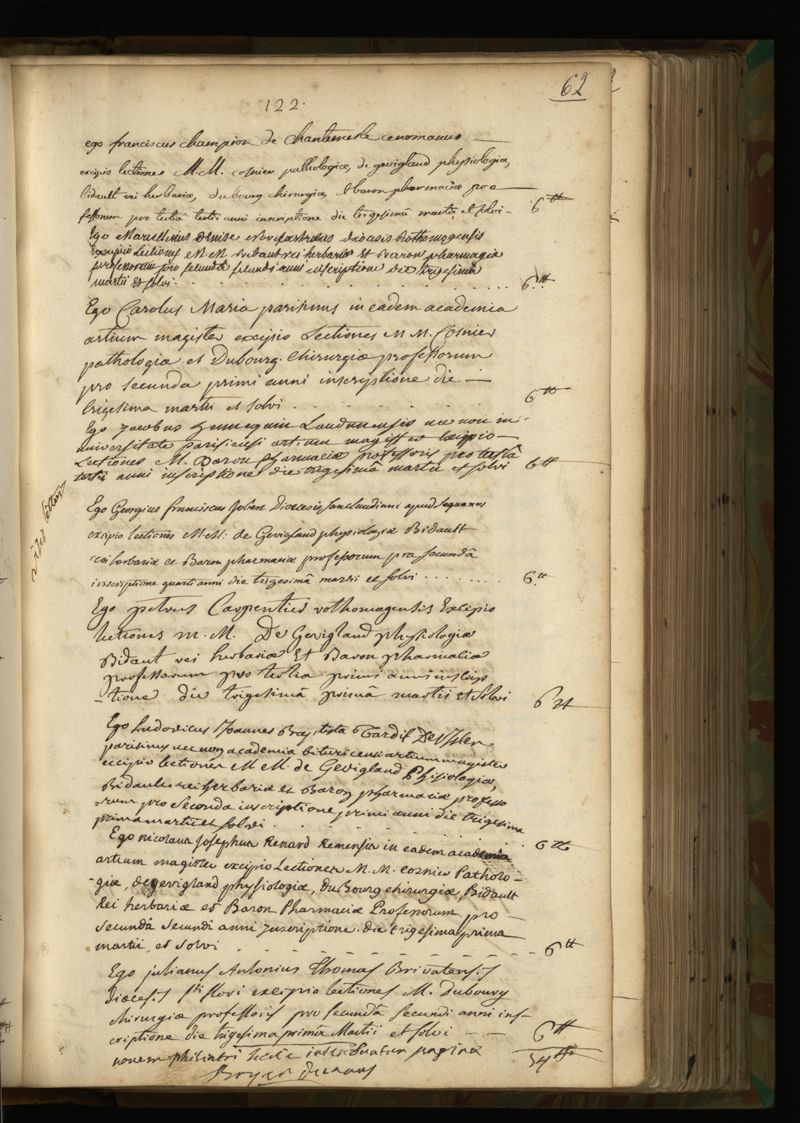 62
122.
ego franciscus champion de Chantemesle cenomanus
excipio lectiones M.M. cosnier pathologiæ, de gevigland physiologiæ,
bidault rei herbariæ, dubourg chirurgiæ, et baron pharmaciæ pro
fessorum pro tertiâ tertii anni inscriptione die trigesimâ martii, et solvi - 6 tt
Ego Marcellinus Denise diœcesis Rothomagensis
Excipio Lectiones M.M. Bidaut rei herbariæ Et Baron pharmaciæ
professorum pro secundâ secundi anni inscriptione die trigesimâ
martii et solvi . . . . . . . . . 6 tt
Ego Carolus Maria parisinus in eadem academia
artium magister excipio Lectiones M M. Cosnier
pathologiæ et Dubourg Chirurgiæ professorum
pro secunda primi anni inscryptione die —
trigesima martii et solvi . . . . . 6 tt
Ego jacobus hennequin Laudunensis nec non in
universitate parisiensi artium magister excipio —
Lectiones M. Baron pharmaciæ professoris pro tertiâ
tertii anni inscriptione die trigesimâ martii et solvi 6 tt
Ego Georgius franciscus jobert Diœcesis sanclaudianæ apud sequanos
excipio lectiones M.M. de Gevigland physiologiæ Bidault
rei herbariæ et Baron pharmaciæ professorum pro secundâ
inscriptione quarti anni die trigesimâ martii et solvi . . . . . . . . 6 tt
Ego petrus Carpentier rothomagensis Excipio
lectiones m. M. De Gevigland physiologiæ
Bidaut rei herbariæ Et Baron pharmaciæ
professorum pro tertia primi anni inscrip
-tione die trigesimâ primâ martii et solvi 6 tt
Ego Ludovicus Joannes Baptista Tardif
parisinus nec non academiæ bituricensis artium magister
excipio lectiones M M. de Gevigland Physiologiæ,
Bidault rei herbariæ et Baron pharmaciæ professo
-rum pro secunda inscriptione primi anni die trigesima
prima martii et solvi . . . . . 6 tt
Ego nicolaus Josephus Renard Remensis in eadem academia
artium magister excipio Lectiones M. M. cosnier Patholo-
-giæ, de gevigland physiologiæ, du Bourg chirurgiæ, Bidault
Rei herbariæ et Baron Pharmaciæ Professorum pro —
secundâ secundi anni Inscriptione die trigesima prima
martii, et solvi - - - - - 6 tt
Ego julianus Antonius Thomas Brivatensis
diœcesis Sti flori excipio lectiones M. Dubourg
chirurgiæ professoris pro secundâ secundi anni ins-
criptione die trigesima primâ Martii et solvi — 6 tt
novem philiatri hâcce paginâ 54 tt
Boyer decanus